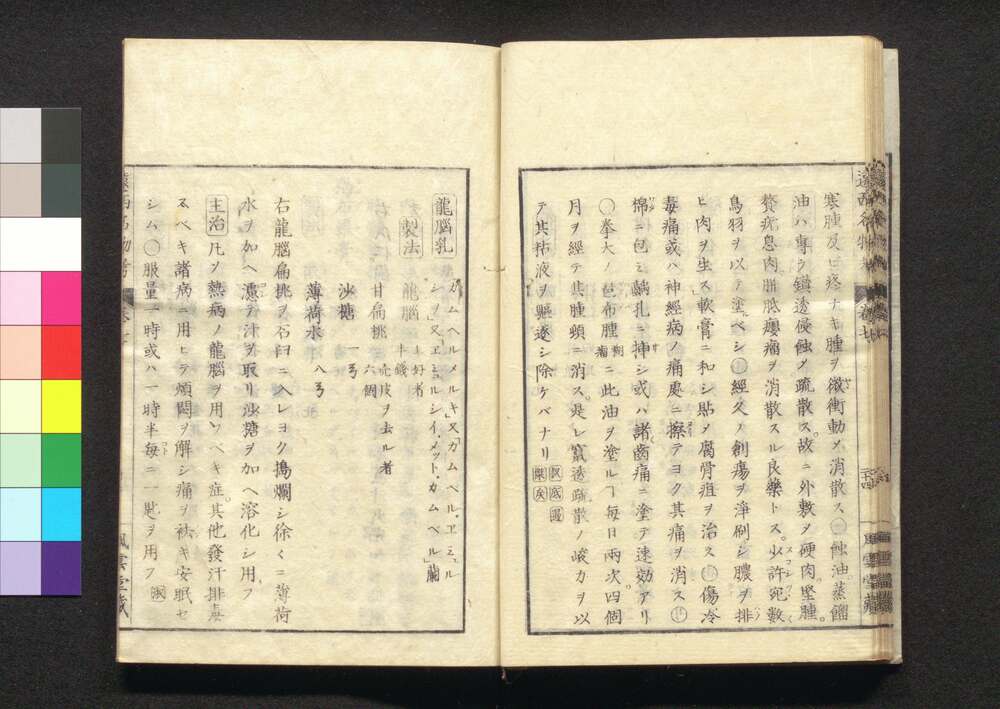 寒腫及ヒ疼ナキ腫ヲ微衝動メ消散ス○蝕油蒸餾
油ハ專ラ鑽透侵蝕メ疏散ス。故ニ外敷メ硬肉。堅腫。
贅疣息肉胼胝癭瘤ヲ消散スル良藥トス。少許宛數
鳥羽ヲ以テ塗ベシ○經久ノ創瘍ヲ淨刷シ膿ヲ排
ヒ肉ヲ生ス軟膏ニ和シ貼メ腐骨疽ヲ治ス○傷冷
毒痛或ハ神經病ノ痛處ニ擦テヨク其痛ヲ消ス
綿ニ包ミ齲孔ニ挿シ或ハ諸齒痛ニ塗テ速効アリ
○拳大ノ色布腫瘤ニ此油ヲ塗ルヿ每日兩次四個
月ヲ經テ其腫頓ニ消ス。是レ竄透疏散ノ峻力ヲ以
テ其粘液ヲ驅逐シ除ケバナリ
龍腦乳 ガムヘルメルキ」又「ガムヘル・ヱミュル
シー」又「ヱミュルシイ、メット、カムペル」蘭
製法 龍腦 上好者 十錢 甘扁桃 六個 売皮ヲ去ル者
沙糖 一弓
薄荷水 八弓
右龍腦扁挑ヲ石臼ニ入レヨク搗爛シ徐〱ニ薄荷
水ヲ加ヘ濾テ汁ヲ取リ沙糖ヲ加ヘ溶化シ用フ
主治 凡ソ熱病ノ龍腦ヲ用ウベキ症。其他發汗排毒
スベキ諸病ニ用ヒテ煩悶ヲ解シ痛ヲ袪キ安眠セ
シム○服量一時或ハ一時半每ニ一匙ヲ用フ